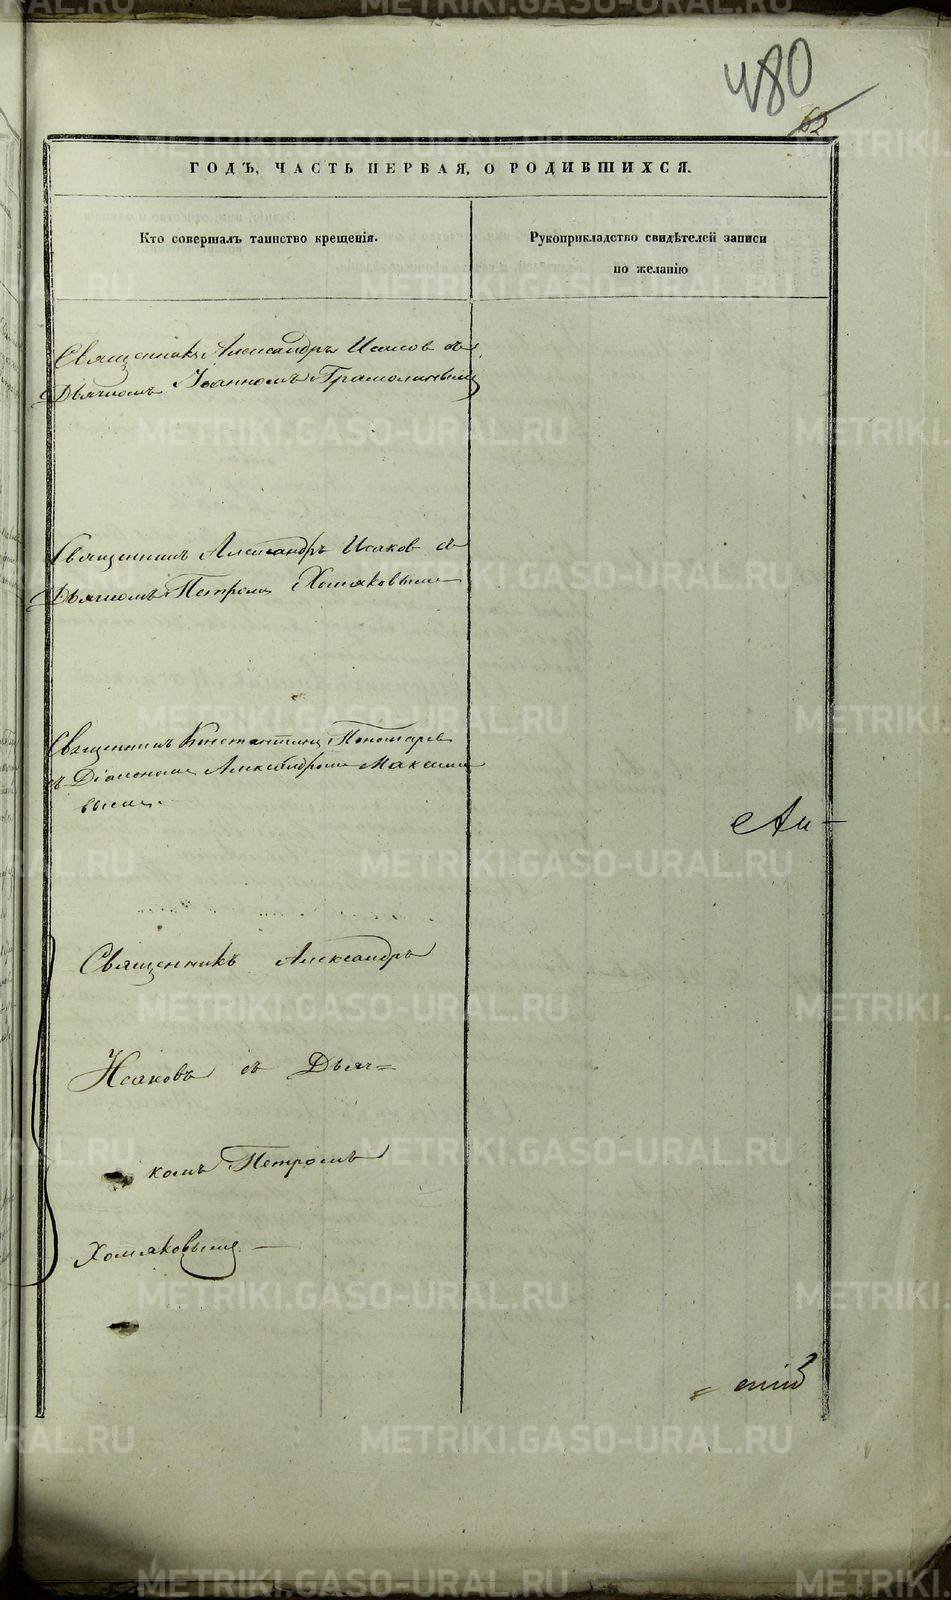 480
62
ГОДЪ, ЧАСТЬ ПЕРВАЯ, О РОДИВШИХСЯ.
Кто совершалъ таинство крещенія.
Рукоприкладство свидѣтелей записи
по желанію
Священникъ Александръ Исаков съ
Дьячкомъ Іоанномъ Грамолинымъ
Священникъ Александръ Исаков съ
Дьячкомъ Петромъ Хомяковымъ
Священникъ Константинъ Пономарев
съ Діакономъ Александромъ Максимо
вымъ.
Ан-
Священникъ Александръ
Исаковъ съ Дьяч=
комъ Петромъ
Хомяковымъ
METRIKI.GASO-URAL.RU